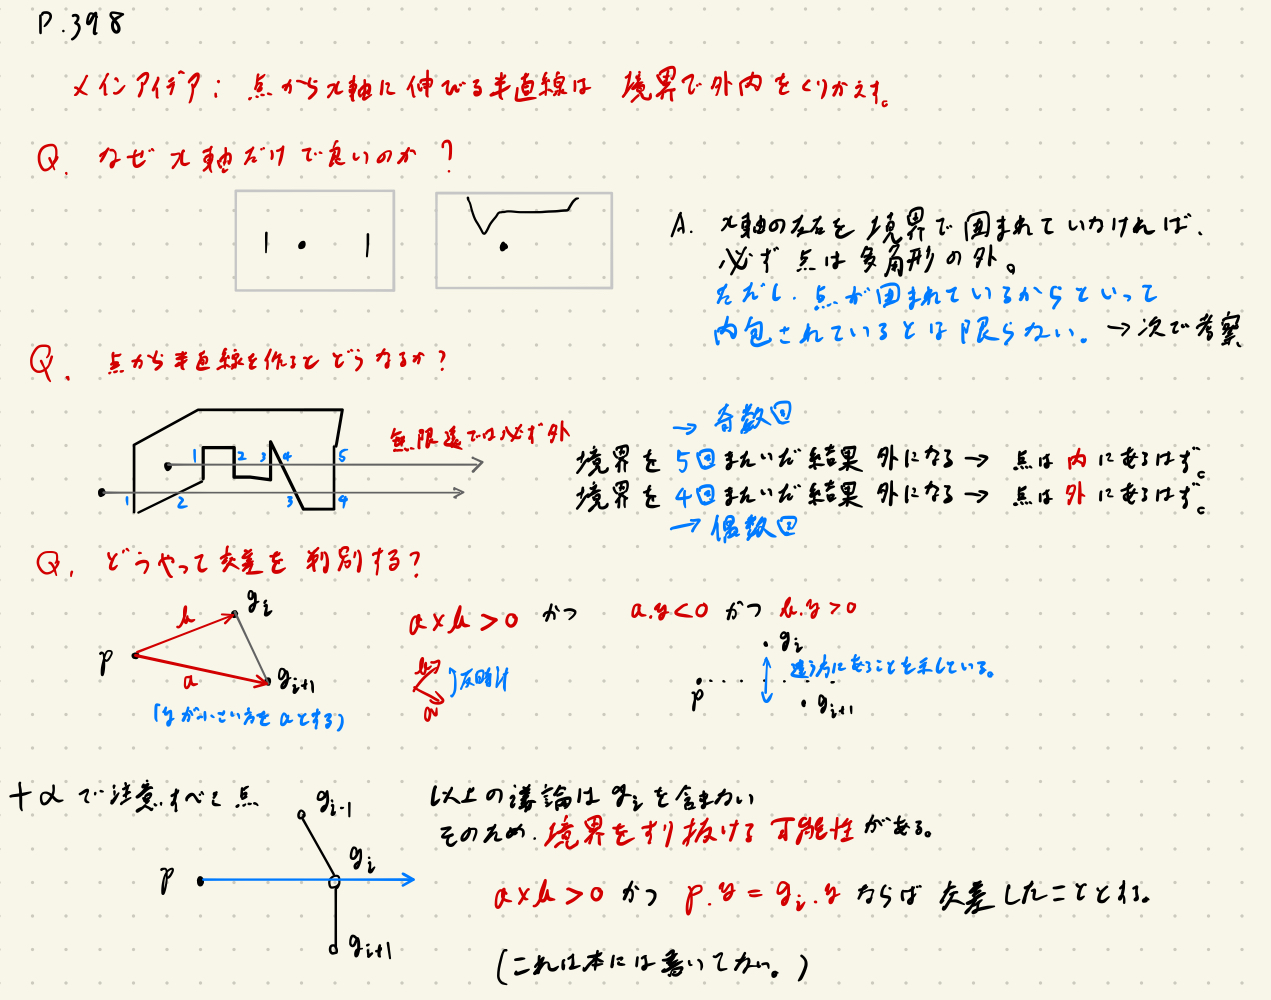 P.398
メインアイデア: 点からx軸に伸びる半直線は 境界で外内をくりかえす。
Q. なぜx軸だけで良いのか?
A. x軸の左右を境界で囲まれていなければ、
必ず点は多角形の外。
ただし、点が囲まれているからといって
内包されているとは限らない。→次で考察
Q. 点から半直線を作るとどうなるか?
無限遠では必ず外
1 2 3 4 5
1 2 3 4
→ 奇数回
境界を5回またいだ結果 外になる → 点は内にあるはず。
境界を4回またいだ結果 外になる → 点は外にあるはず。
→ 偶数回
Q. どうやって交差を判別する?
p b a gi gi+1
(yが小さい方をaとする)
a×b>0 かつ a.y<0 かつ b.y>0
b a 反時計
p gi gi+1
違う方にあることを示している。
+αで注意すべき点
p gi-1 gi gi+1
以上の議論はgiを含まない
そのため、境界をすり抜ける可能性がある。
a×b>0 かつ p.y=gi.y ならば 交差したこととする。
(これは本には書いてない。)